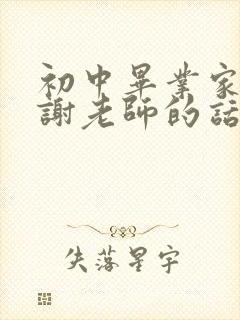 初中畢業家
謝老師的話
失落星宇